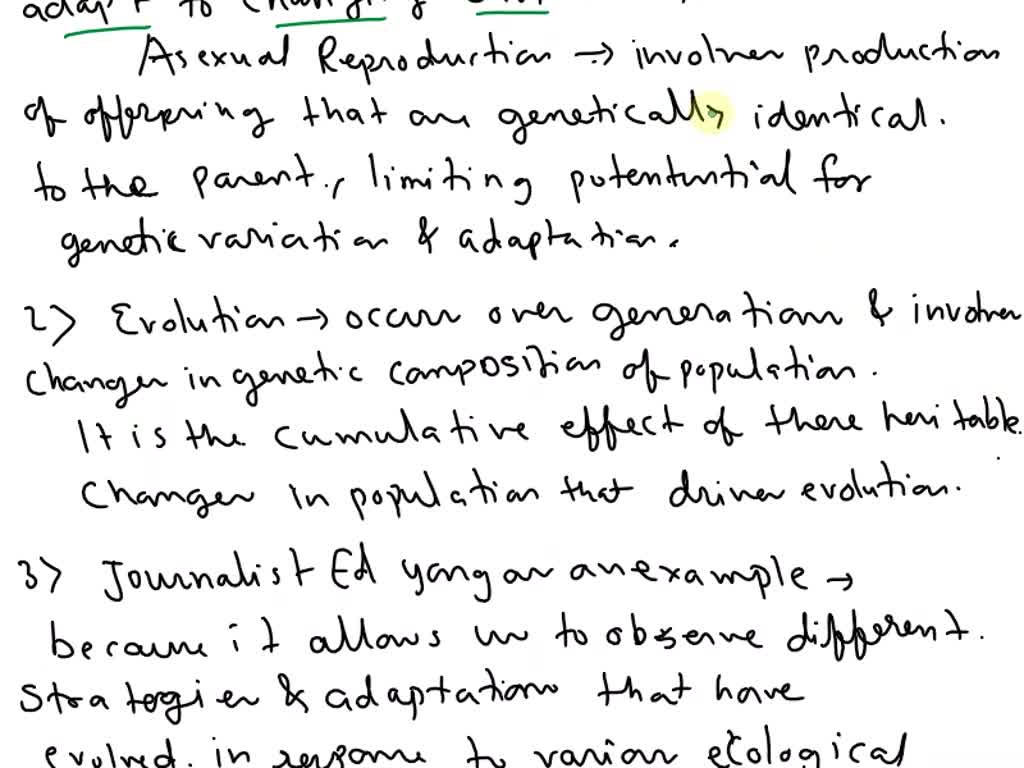 adapt to changing
Asexual Reproduction → involves production
of offspring that are genetically identical.
to the parent, limiting potentuntial for
genetic variation & adaptation.
2> Evolution → occurs over generations & involves
changes in genetic composition of population.
It is the cumulative effect of these heritable.
changes in population that drives evolution.
3> Journalist Ed yong as an example →
because it allows us to observe different.
Strategies & adaptations that have
evolved. in response to various ecological